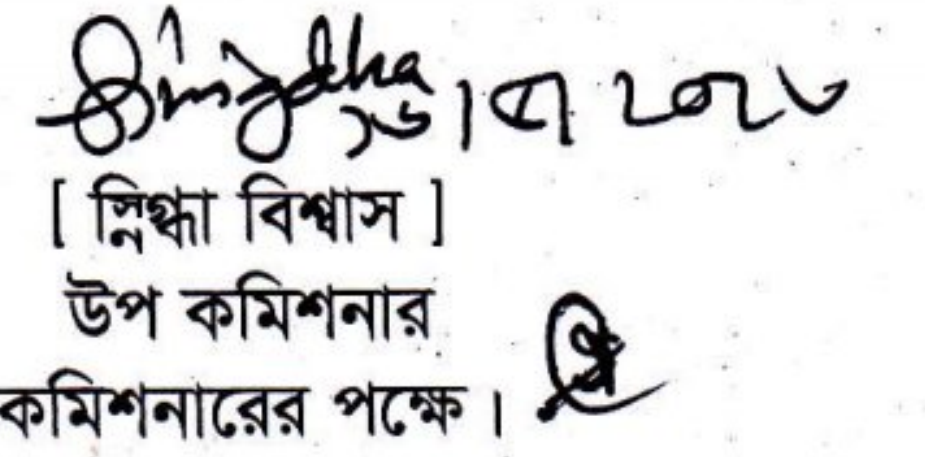 Snigdha
[ স্নিগ্ধা বিশ্বাস ]
উপ কমিশনার
কমিশনারের পক্ষে।